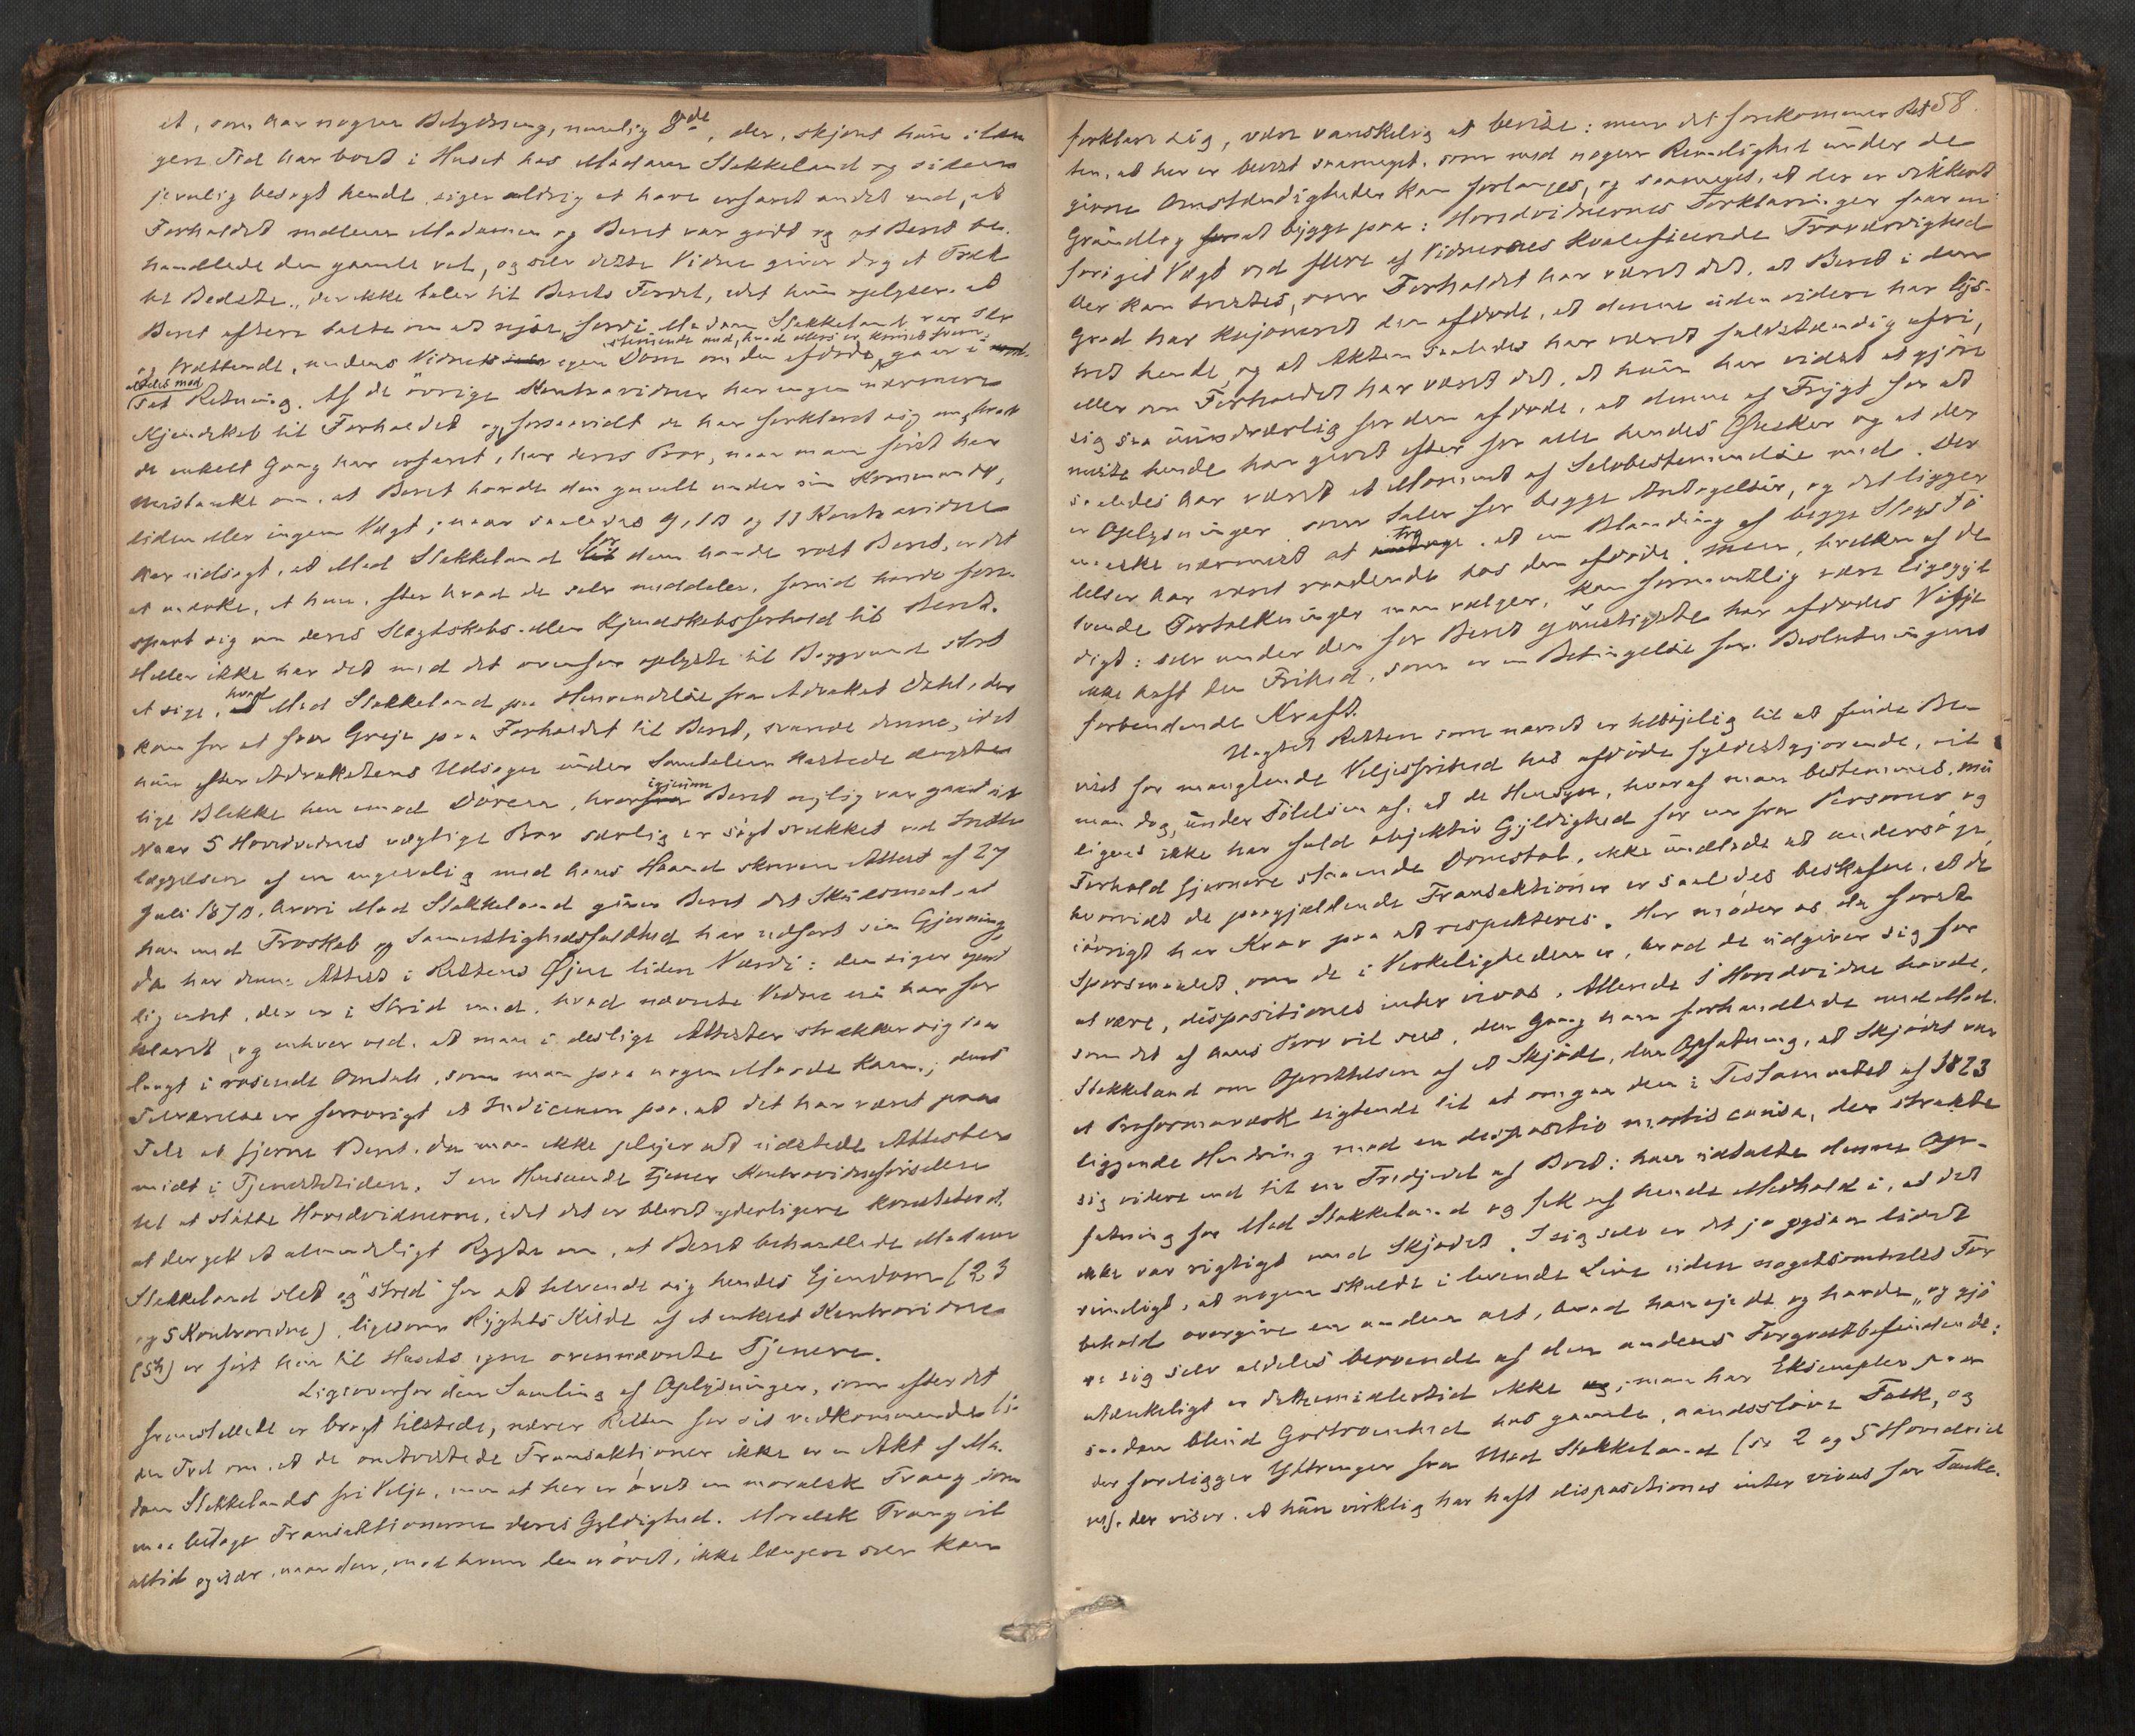 et, som har nogen Betydning, navnlig 8de, der, skjønt hun i læn
gere Tid har boet i Huset hos Madam Stakkeland og siden
jevnlig besøgt hende, siger aldrig at have erfaret andet end, at
Forholdet mellem Madamen og Beret var godt og at Beret be-
handlede den gamle vel, og selv dette Vidne giver dog et Træk
til Bedste, der ikke taler til Berets Fordel, idet hun oplyser, at
Beret oftere talte om at rejse, fordi Madam Stakkeland var
trættende, medens Vidnets egen Dom om den afdøde, stemmende med, hvad ellers er kommet frem, gaar i
aldeles mod
sat Retning. Af de øvrige Kontravidner har ingen nærmere
Kjendskab til Forholdet og forsaavidt de har forklaret sig om, hvad
de enkelt Gang har erfaret, har deres Prov, naar man først har
Mistanke om, at Beret havde den gamle under sin Kommando,
liden eller ingen Vægt; naar saaledes 9, 10 og 11 Kontravidne
har udsagt, at Mad Stakkeland for dem havde rost Beret, er det
at mærke, at hun, efter hvad de selv meddeler, forud havde for-
spurt sig om deres Slægtskabs- eller Kjendskabsforhold til Beret.
Heller ikke har det med det ovenfor oplyste til Baggrund stort
at sige, hvad Mad Stakkeland paa Henvendelse fra Advokat Dahl, der
kom for at faa Greje paa Forholdet til Beret, svarede denne, idet
hun efter Advokatens Udsagn under Samtalen kastede ængste
lige Blikke hen imod Døren, hvorigjennem Beret nylig var gaaet ud
Naar 5 Hovedvidnes vægtige Prov særlig er søgt svækket ved Frem
læggelsen af en angivelig med hans Haand skreven Attest af 27
Juli 1870, hvori Mad Stakkeland giver Beret det Skudsmaal at
han med Troskab og Samvittighedsfuldhed har udført sin Gjerning,
da har denne Attest i Rettens Øjne liden Værdi: den siger egent
lig intet, der er i Strid med, hvad nævnte Vidne nu har for
klaret, og enhver ved, at man i deslige Attester strækker sig saa
langt i rosende Omtale, som man paa nogen Maade kan; dens
Tilværelse er forøvrigt et Indicium paa, at det har været paa
Tale at fjerne Beret, da man ikke plejer at udstede Attester
midt i Tjenestetiden. I en Henseende tjener Kontravidneførselen
til at støtte Hovedvidnerne, idet det er blevet yderligere konstateret,
at der gik et almindeligt Rygte om, at Beret behandlede Madam
Stakkeland slet og "stred" for at tilvende sig hendes Ejendom (2, 3
og 5 Kontravidne), ligesom Rygtets Kilde af et enkelt Kontravidne
(5te) er ført hen til Husets egne ovennævnte Tjenere.
Ligeoverfor den Samling af Oplysninger, som efter det
fremstillede er bragt tilstede, nærer Retten for sit vedkommende in-
den Tvil om, at de omtvistede Transaktioner ikke er en Akt af Ma-
dam Stakkelands fri Vilje, men at her er øvet en moralsk Tvang som
maa betage Transaktionerne deres Gyldighed. Moralsk Tvang vil
altid og især, naar den, mod hvem den er øvet, ikke længere selv kan
58.
forklare sig, være vanskelig at bevise: men det forekommer Ret
ten, at her er bevist saameget, som med nogen Rimelighed under de
givne Omstændigheder kan forlanges, og saameget, at der er sikkert
Grundlag at bygge paa: Hovedvidnernes Forklaringer faar en
forøget Vægt ved flere af Vidnernes kvalificerede Troværdighed
Der kan tvistes, om Forholdet har været det, at Beret i den
Grad har kujoneret den afdøde, at denne uden videre har lyst-
ret hende og at Akten saaledes har været fuldstændig ufri,
eller om Forholdet har været det, at hun har vidst at gjøre
sig saa uundværlig for den afdøde, at denne af Frygt for at
miste hende har givet efter for alle hendes Ønsker og at der
saaledes har været et Moment af Selvbestemmelse med. Der
er Oplysninger som taler for begge Antagelser, og det ligger
maaske nærmest at tro, at en Blanding af begge Slags Fø
lelser har været raadende hos den afdøde. Men, hvilken af de
tvende Fortolkninger man vælger, kan formentlig være ligegyl
digt: selv under den for Beret gunstigste har afdødes Vilje
ikke haft den Frihed, som er en Betingelse for Beslutningens
forbindende Kraft.
Uagtet Retten som nævnt er tilbøjelig til at finde Be-
viset for manglende Viljesfrihed hos afdøde fyldestgjørende, vil
man dog, under Følelsen af, at de Hensyn, hvoraf man bestemmes, mu
ligens ikke har fuld objektiv Gyldighed for en fra Personer og
Forhold fjernere staaende Domstol, ikke undlade at undersøge,
hvorvidt de paagjældende Transaktioner er saaledes beskafne, at de
iøvrigt har Krav paa at respekteres. Her møder os da først
Spørsmaalet, om de i Virkeligheden er, hvad de udgiver sig for
at være, dispositiones inter vivos. Allerede 5 Hovedvidne havde,
som det af hans Prov vil sees, den Gang han forhandlede med Mad.
Stakkeland om Oprettelsen af et Skjøde, den Opfatning, at Skjødet var
et Proformaværk sigtende til at omgaa den i Testamentet af 1823
liggende Hindring mod en dispositio mortis causa, der strakte
sig videre end til en Tredjedel af Boet: han udtalte denne Op-
fatning for Mad Stakkeland og fik af hende Medhold i, at det
ikke var rigtigt med Skjødet. I sig selv er det jo ogsaa lidet
rimeligt, at nogen skulde i levende Live uden nogetsomhelst For
behold overgive en anden alt, hvad han ejede og havde, og gjø
re sig selv aldeles beroende af den andens Forgodtbefindende:
utænkeligt er dette imidlertid ikke; man har Eksempler paa
saadan blind Godtroenhed hos gamle, aandssløve Folk, og
der foreligger Ytringer fra Mad Stakkeland (se 2 og 5 Hovedvid
ne), der viser, at hun virkelig har haft dispositiones inter vivos for Tanke.